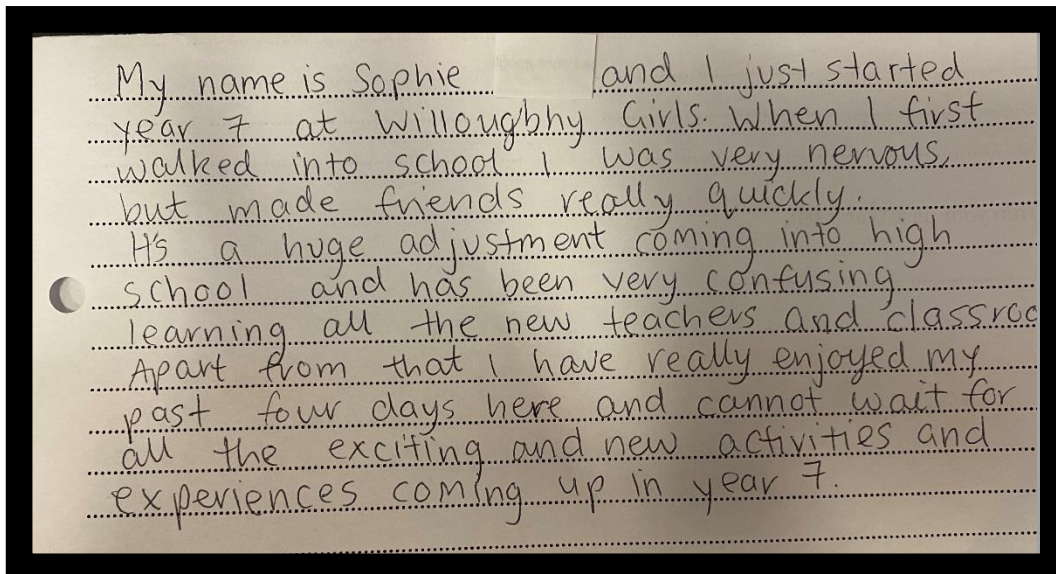 My name is Sophie and I just started
year 7 at Willougbhy Girls. When I first
walked into school I was very nervous,
but made friends really quickly.
It's a huge adjustment coming into high
school and has been very confusing
learning all the new teachers and classroo
Apart from that I have really enjoyed my
past four days here and cannot wait for
all the exciting and new activities and
experiences coming up in year 7.